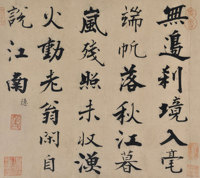 無邊刹境入毫
端帆落秋江暮
嵐殘照未收漁
火動老翁閑自
說江南 隱